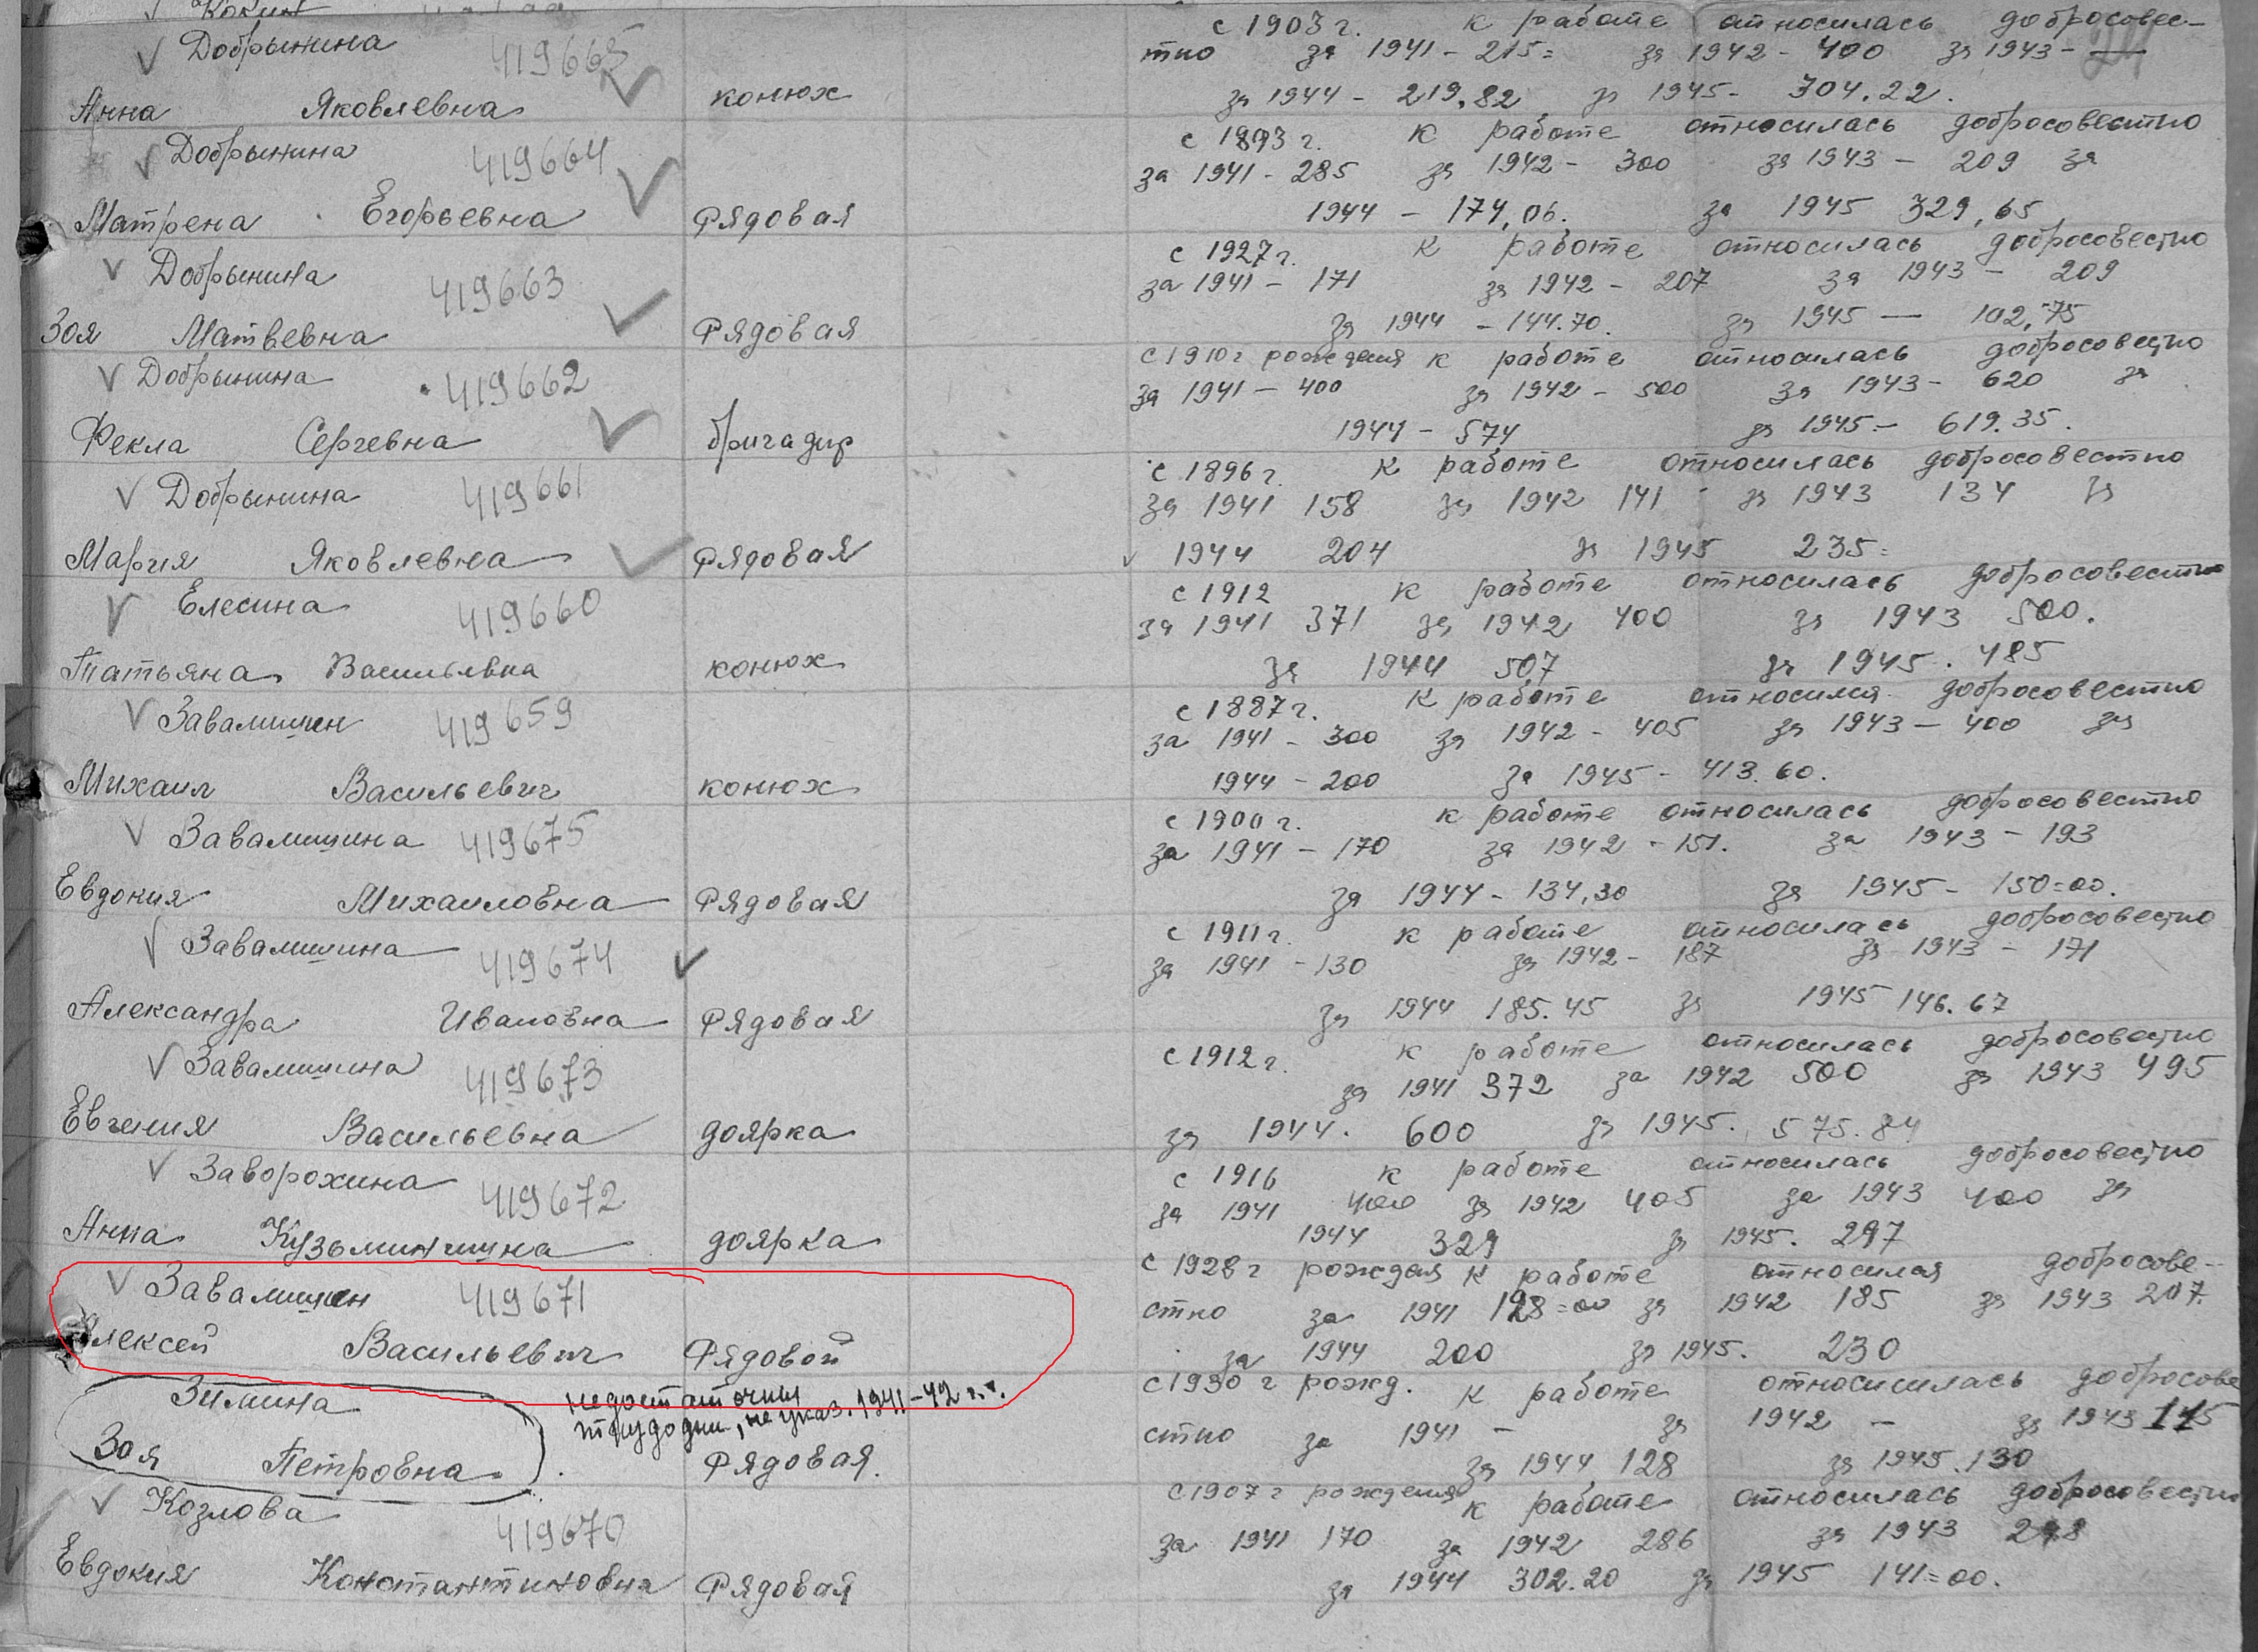 Кокин
Добрынина 419665 с 1903 г. к работе относилась добросовес-
тно за 1941 - 215= за 1942 - 400 за 1943 -
Анна Яковлевна конюх за 1944 - 219,82 за 1945 - 304.22.
Добрынина 419664 с 1893 г. к работе относилась добросовестно
за 1941 - 285 за 1942 - 300 за 1943 - 209 за
Матрена Егорьевна Рядовая 1944 - 174,06. за 1945 329,65
Добрынина 419663 с 1927 г. к работе относилась добросовестно
за 1941 - 171 за 1942 - 207 за 1943 - 209
Зоя Матвевна Рядовая за 1944 - 144.70. за 1945 — 102,75
Добрынина 419662 с 1910 г рождения к работе относилась добросовестно
за 1941 - 400 за 1942 - 500 за 1943 - 620 за
Фекла Сергевна бригадир 1944 - 574 за 1945 - 619.35.
Добрынина 419661 с 1896 г. к работе относилась добросовестно
за 1941 158 за 1942 141 за 1943 134 за
Мария Яковлевна Рядовая 1944 204 за 1945 235=
Елесина 419660 с 1912 к работе относилась добросовестно
за 1941 371 за 1942 400 за 1943 500.
Татьяна Васильевна конюх за 1944 507 за 1945. 485
Завалишин 419659 с 1887 г. к работе относился добросовестно
за 1941 - 300 за 1942 - 405 за 1943 - 400 за
Михаил Васильевич конюх 1944 - 200 за 1945 - 413.60.
Завалишина 419675 с 1900 г. к работе относилась добросовестно
за 1941 - 170 за 1942 - 151. за 1943 - 193
Евдокия Михаиловна Рядовая за 1944 - 134,30 за 1945 - 150=00.
Завалишина 419674 с 1911 г. к работе относилась добросовестно
за 1941 - 130 за 1942 - 187 за 1943 - 171
Александра Ивановна Рядовая за 1944 185.45 за 1945 146.67
Завалишина 419673 с 1912 г. к работе относилась добросовестно
за 1941 372 за 1942 500 за 1943 495
Евгения Васильевна доярка за 1944. 600 за 1945. 575.84
Заворохина 419672 с 1916 к работе относилась добросовестно
за 1941 400 за 1942 405 за 1943 400 за
Анна Кузьминична доярка 1944 329 за 1945. 297
Завалишин 419671 с 1928 г рождения к работе относился добросове-
стно за 1941 198=00 за 1942 185 за 1943 207.
Алексей Васильевич Рядовой за 1944 200 за 1945. 230
Зимина недостаточны с 1930 г рожд. к работе относисилась добросове
трудодни, не указ. 1941-42 г.г. стно за 1941 - за 1942 - за 1943 115
Зоя Петровна Рядовая. за 1944 128 за 1945. 130
Козлова 419670 с 1907 г рождения к работе относилась добросовестно
за 1941 170 за 1942 286 за 1943
Евдокия Константиновна Рядовая за 1944 302.20 за 1945 141=00.